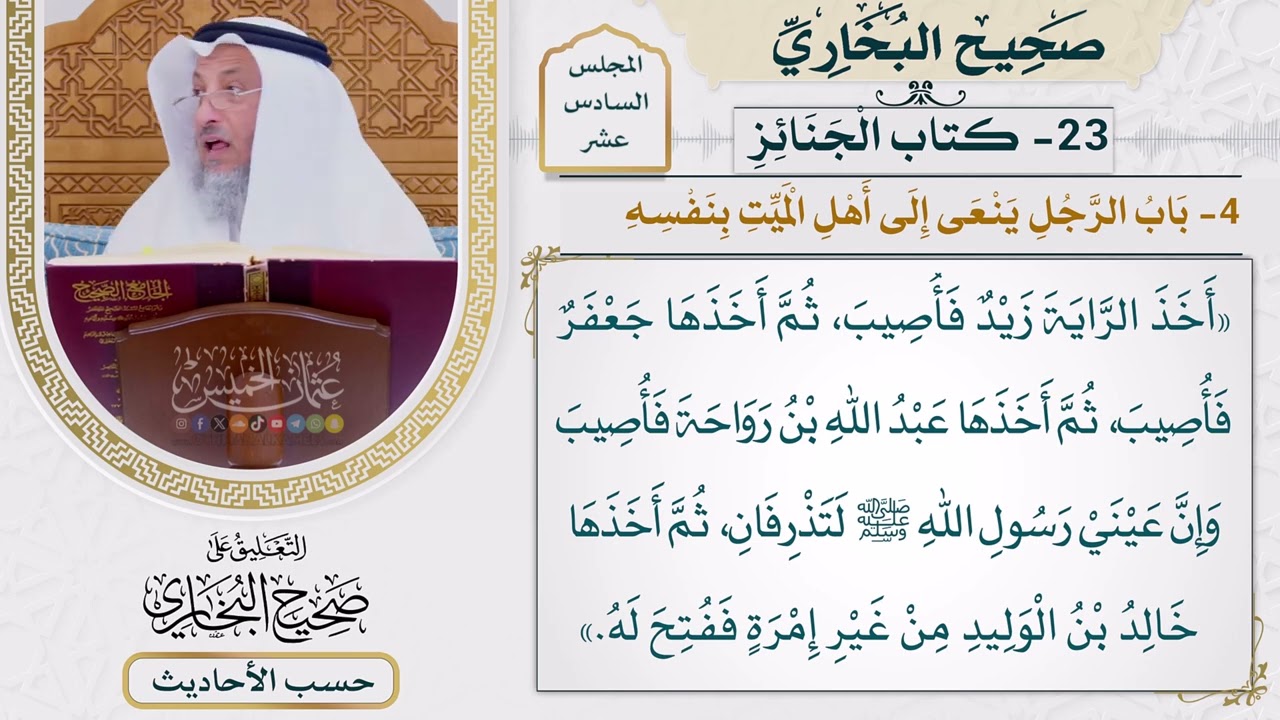 صَحِيح البُخَارِيِّ
المجلس
السادس
عشر
23- كتاب الْجَنَائِزِ
4- بَابُ الرَّجُلِ يَنْعَى إِلَى أَهْلِ الْمَيِّتِ بِنَفْسِهِ
«أَخَذَ الرَّايَةَ زَيْدٌ فَأُصِيبَ، ثُمَّ أَخَذَهَا جَعْفَرٌ
فَأُصِيبَ، ثُمَّ أَخَذَهَا عَبْدُ اللهِ بْنُ رَوَاحَةَ فَأُصِيبَ
وَإِنَّ عَيْنَيْ رَسُولِ اللهِ ﷺ لَتَذْرِفَانِ، ثُمَّ أَخَذَهَا
خَالِدُ بْنُ الْوَلِيدِ مِنْ غَيْرِ إِمْرَةٍ فَفُتِحَ لَهُ.»
الجامع الصحيح
عثمان الخميس
التَّعْلِيقُ عَلَى
صَحِيحِ الْبُخَارِي
حسب الأحاديث